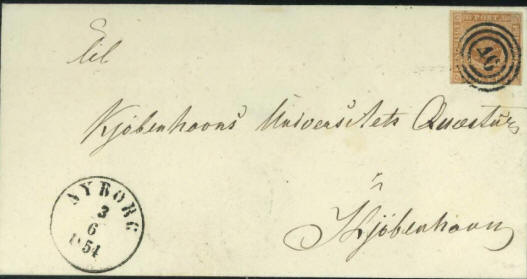 POST
46
Til
Kjøbenhavns Universitets Quæstur
i
Kjøbenhavn
NYBORG
3
6
1854